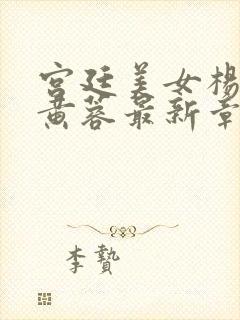 宫廷美女杨
黄蓉最新章
李贽